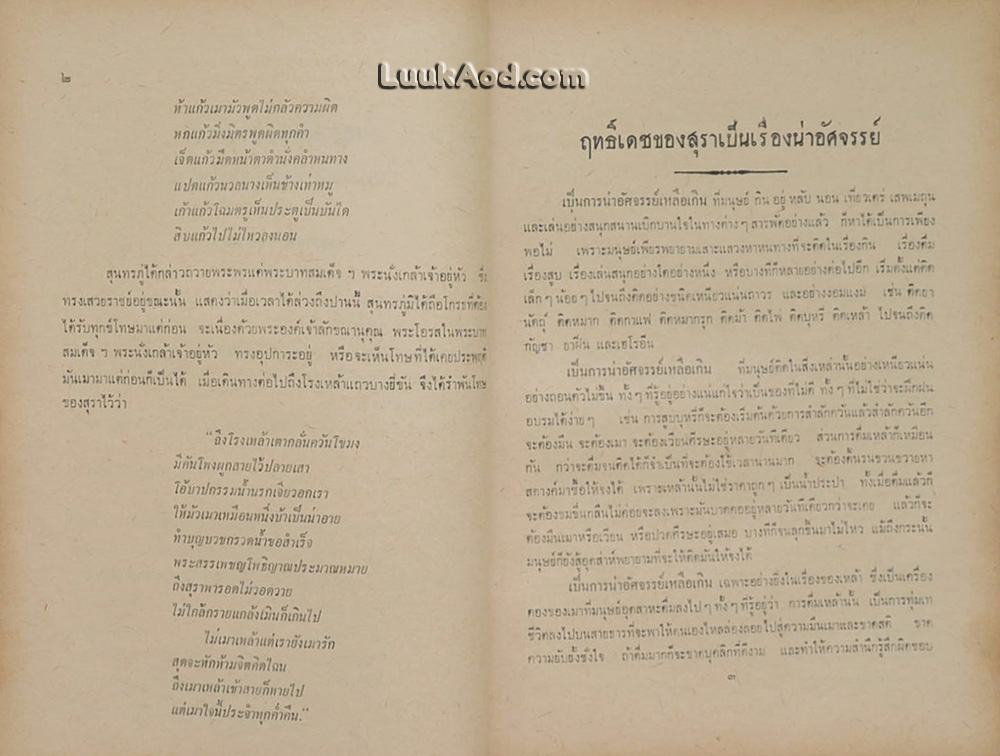 LuukAod.com
๒
ห้าแก้วเมามัวพูดไม่กลัวความผิด
หกแก้วมิ่งมิตรพูดผิดทุกคำ
เจ็ดแก้วมืดหน้าตาดำนั่งคลำหนทาง
แปดแก้วนวลนางเห็นช้างเท่าหมู
เก้าแก้วโฉมตรูเห็นประตูเป็นบันได
สิบแก้วไปไม่ไหวลงนอน
สุนทรภู่ได้กล่าวถวายพระพรแด่พระบาทสมเด็จ ฯ พระนั่งเกล้าเจ้าอยู่หัว ซึ่ง
ทรงเสวยราชย์อยู่ขณะนั้น แสดงว่าเมื่อเวลาได้ล่วงถึงปานนี้ สุนทรภู่มิได้ถือโกรธที่ต้อง
ได้รับทุกข์โทษมาแต่ก่อน จะเนื่องด้วยพระองค์เจ้าลักขณานุคุณ พระโอรสในพระบาท
สมเด็จ ฯ พระนั่งเกล้าเจ้าอยู่หัว ทรงอุปการะอยู่ หรือจะเห็นโทษที่ได้เคยประพฤติ
มึนเมามาแต่ก่อนก็เป็นได้ เมื่อเดินทางต่อไปถึงโรงเหล้าแถวบางยี่ขัน จึงได้รำพันโทษ
ของสุราไว้ว่า
"ถึงโรงเหล้าเตากลั่นควันโขมง
มีคันโพงผูกสายไว้ปลายเสา
โอ้บาปกรรมน้ำนรกเจียวอกเรา
ให้มัวเมาเหมือนหนึ่งบ้าเป็นน่าอาย
ทำบุญบวชกรวดน้ำขอสำเร็จ
พระสรรเพชญโพธิญาณประมาณหมาย
ถึงสุราพารอดไม่วอดวาย
ไม่ใกล้กรายแกล้งเมินก็เกินไป
ไม่เมาเหล้าแต่เรายังเมารัก
สุดจะหักห้ามจิตคิดไฉน
ถึงเมาเหล้าเช้าสายก็หายไป
แต่เมาใจนี้ประจำทุกค่ำคืน."
ฤทธิ์เดชของสุราเป็นเรื่องน่าอัศจรรย์
เป็นการน่าอัศจรรย์เหลือเกิน ที่มนุษย์ กิน อยู่ หลับ นอน เที่ยวเตร่ เสพเมถุน
และเล่นอย่างสนุกสนานเบิกบานใจในทางต่าง ๆ สารพัดอย่างแล้ว ก็หาได้เป็นการเพียง
พอไม่ เพราะมนุษย์เพียรพยายามเสาะแสวงหาหนทางที่จะติดในเรื่องกิน เรื่องดื่ม
เรื่องสูบ เรื่องเล่นสนุกอย่างใดอย่างหนึ่ง หรือบางทีก็หลายอย่างต่อไปอีก เริ่มตั้งแต่ติด
เล็ก ๆ น้อย ๆ ไปจนถึงติดอย่างชนิดเหนียวแน่นถาวร และอย่างงอมแงม เช่น ติดยา
นัตถุ์ ติดหมาก ติดกาแฟ ติดหมากรุก ติดม้า ติดไพ่ ติดบุหรี่ ติดเหล้า ไปจนถึงติด
กัญชา ยาฝิ่น และเฮโรอีน
เป็นการน่าอัศจรรย์เหลือเกิน ที่มนุษย์ติดในสิ่งเหล่านั้นอย่างเหนียวแน่น
อย่างถอนตัวไม่ขึ้น ทั้ง ๆ ที่รู้อยู่อย่างแน่แก่ใจว่าเป็นของที่ไม่ดี ทั้ง ๆ ที่ไม่ใช่ว่าจะฝึกฝน
อบรมได้ง่าย ๆ เช่น การสูบบุหรี่ก็จะต้องเริ่มต้นด้วยการสำลักควันแล้วสำลักควันอีก
จะต้องมึน จะต้องเมา จะต้องเวียนศีรษะอยู่หลายวันทีเดียว ส่วนการดื่มเหล้าก็เหมือน
กัน กว่าจะดื่มจนติดได้ก็จำเป็นที่จะต้องใช้เวลานานมาก จะต้องดิ้นรนขวนขวายหา
สตางค์มาซื้อให้จงได้ เพราะเหล้านั้นไม่ใช่ราคาถูก ๆ เป็นน้ำประปา ทั้งเมื่อดื่มแล้วก็
จะต้องขมขื่นกลืนไม่ค่อยจะลงเพราะมันบาดคออยู่หลายวันทีเดียวกว่าจะเคย แล้วก็จะ
ต้องมึนเมาหรือเวียน หรือปวดศีรษะอยู่เสมอ บางทีก็จนลุกขึ้นมาไม่ไหว แม้ถึงกระนั้น
มนุษย์ก็ยังสู้อุตส่าห์พยายามที่จะให้ติดมันให้จงได้
เป็นการน่าอัศจรรย์เหลือเกิน เฉพาะอย่างยิ่งในเรื่องของเหล้า ซึ่งเป็นเครื่อง
ดองของเมาที่มนุษย์อุตสาหะดื่มลงไป ๆ ทั้ง ๆ ที่รู้อยู่ว่า การดื่มเหล้านั้น เป็นการทุ่มเท
ชีวิตลงไปบนสายธารที่จะพาให้ตนเองไหลล่องลอยไปสู่ความมึนเมาและขาดสติ ขาด
ความยับยั้งชั่งใจ ถ้าดื่มมากก็จะขาดบุคลิกที่ดีงาม และทำให้ความสำนึกรู้สึกผิดชอบ
๓